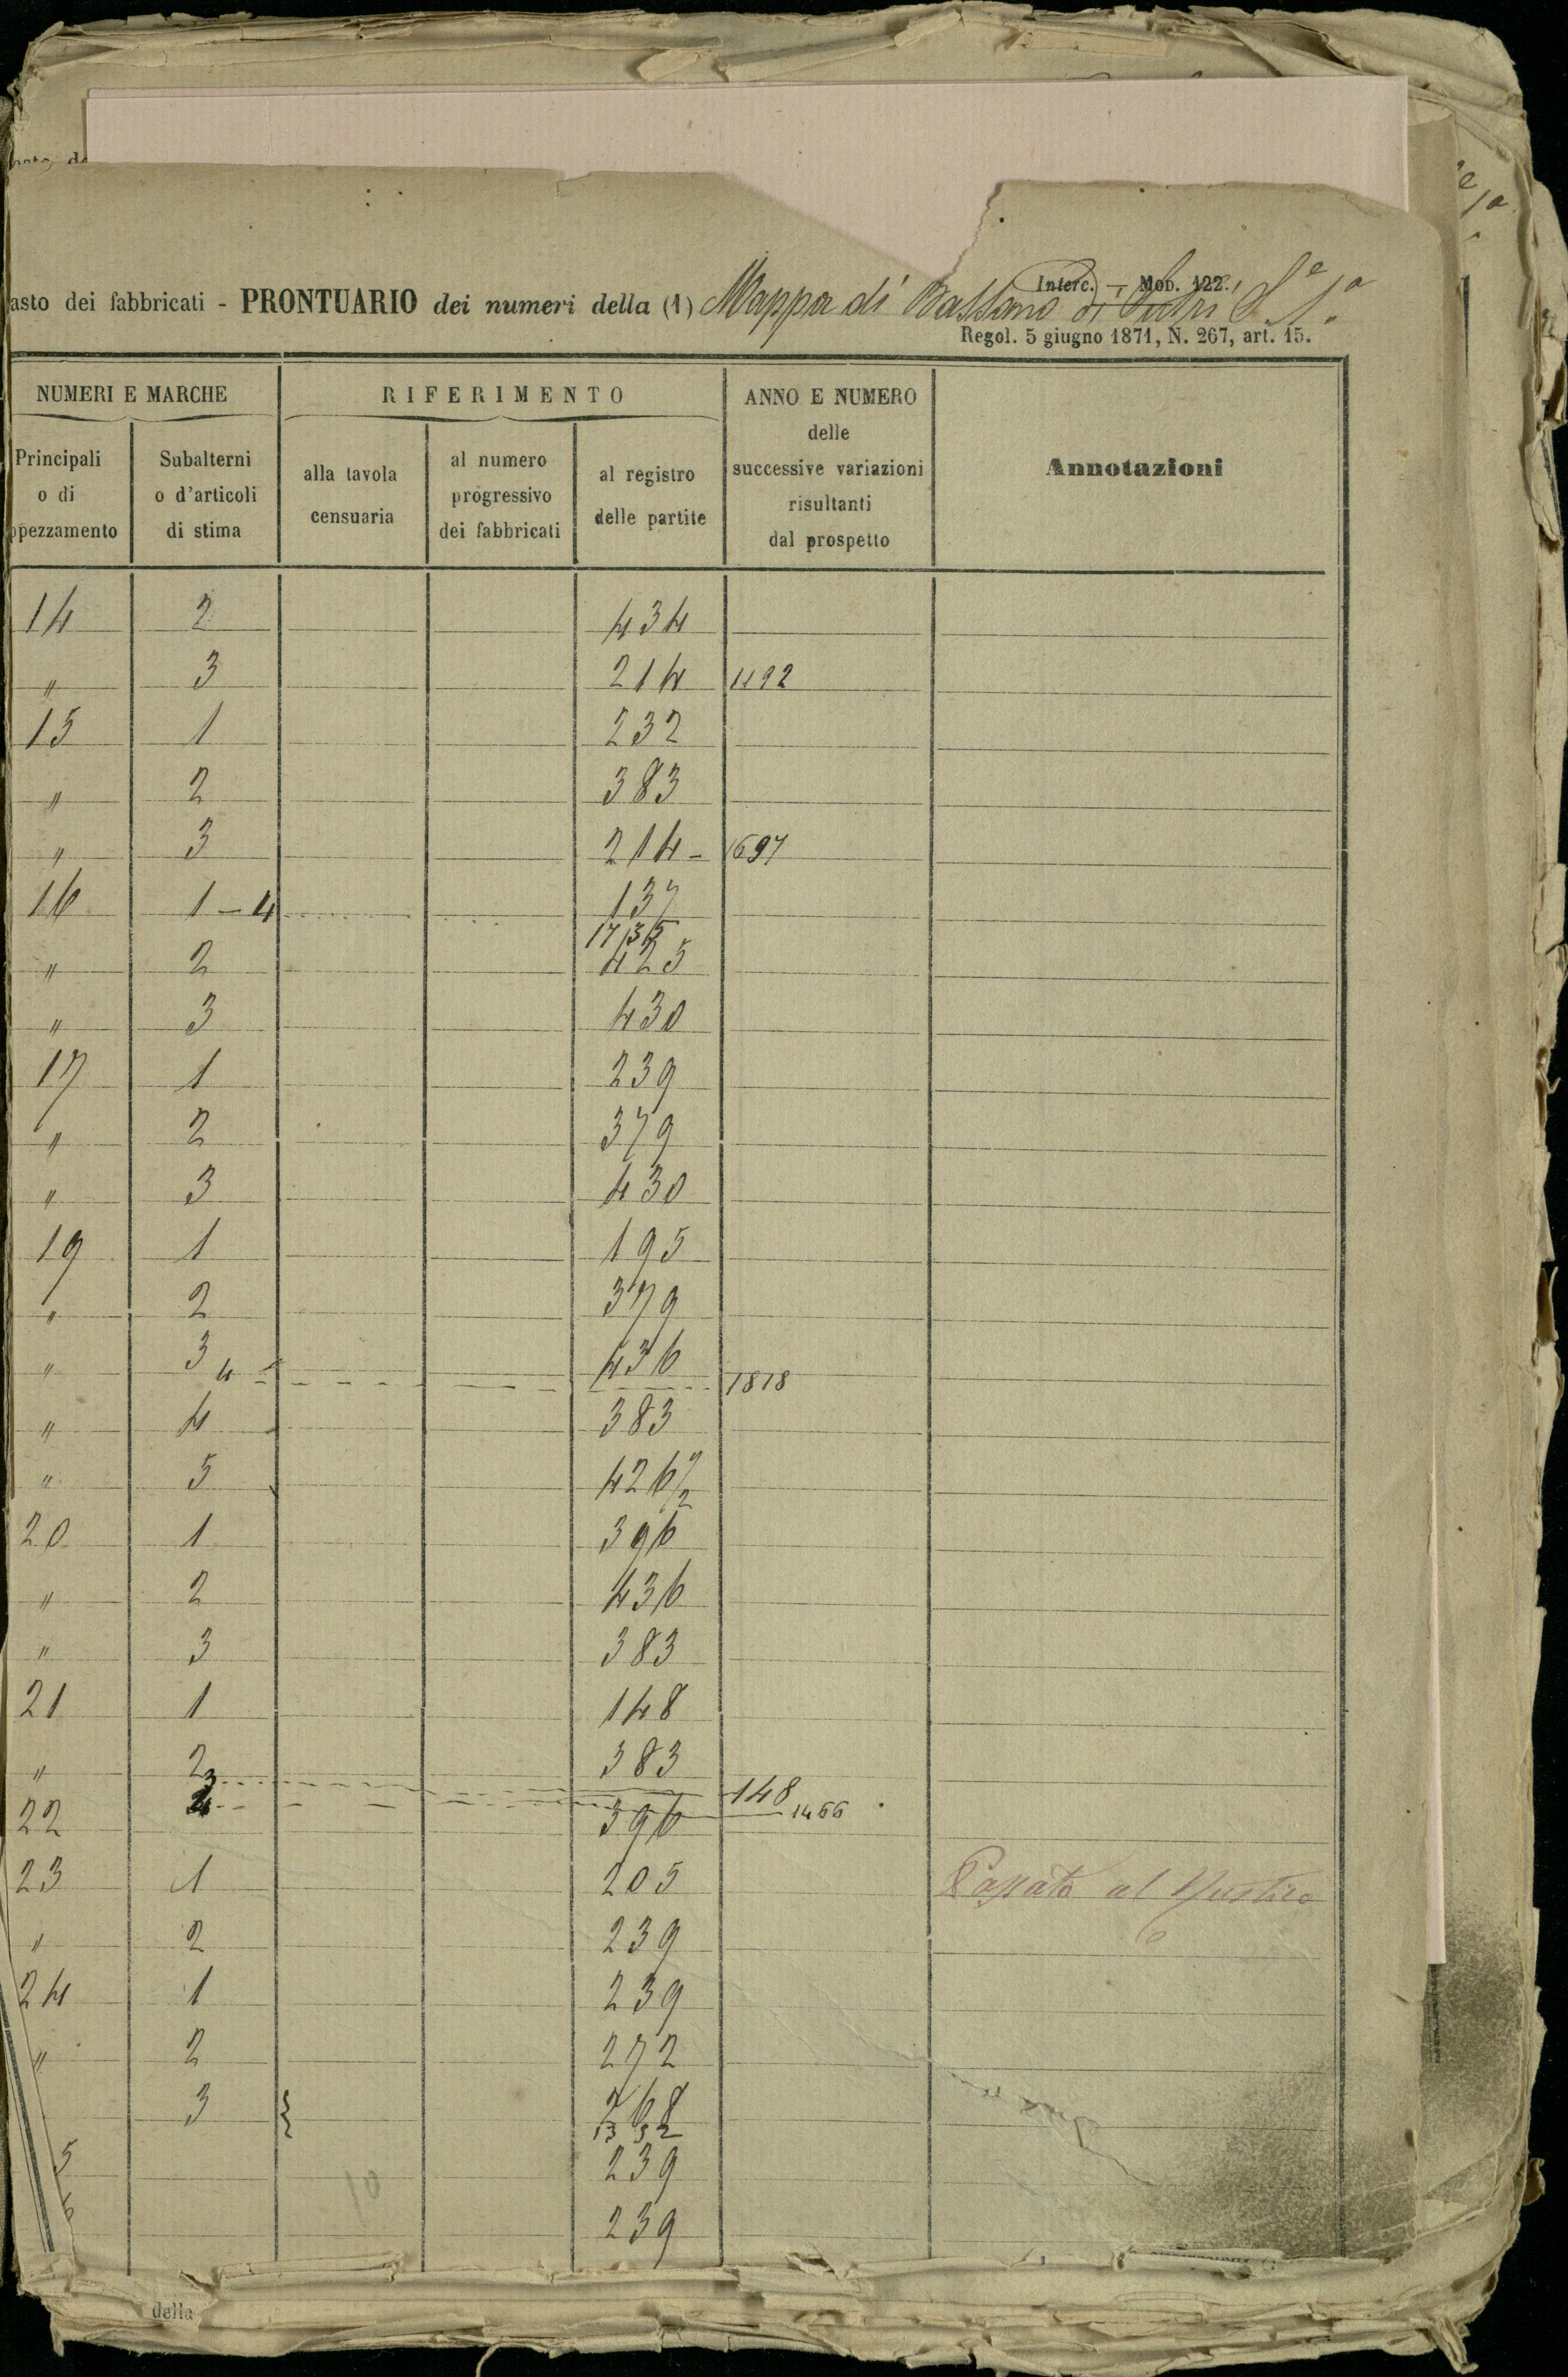 Interc. – Mod. 122.
asto dei fabbricati - PRONTUARIO dei numeri della (1) Mappa di Bassano di Sutri S.e 1a
Regol. 5 giugno 1871, N. 267, art. 15.
NUMERI E MARCHE RIFERIMENTO ANNO E NUMERO delle successive variazioni risultanti dal prospetto Annotazioni
Principali o di ppezzamento Subalterni o d'articoli di stima alla tavola censuaria al numero progressivo dei fabbricati al registro delle partite
14 2 434
" 3 214 1192
15 1 232
" 2 383
" 3 214 - 1697
16 1 - 4 137
1735
" 2 425
" 3 430
17 1 239
" 2 379
" 3 430
19 1 195
" 2 379
" 3 436
4 1818
" 4 383
" 5 426
20 1 396
" 2 436
" 3 383
21 1 148
" 2 383
3 148
4 1466
22 396
23 1 205 Passato al Rustico
" 2 239
24 1 239
" 2 272
3 268
1332
5 239
6 239
10
della